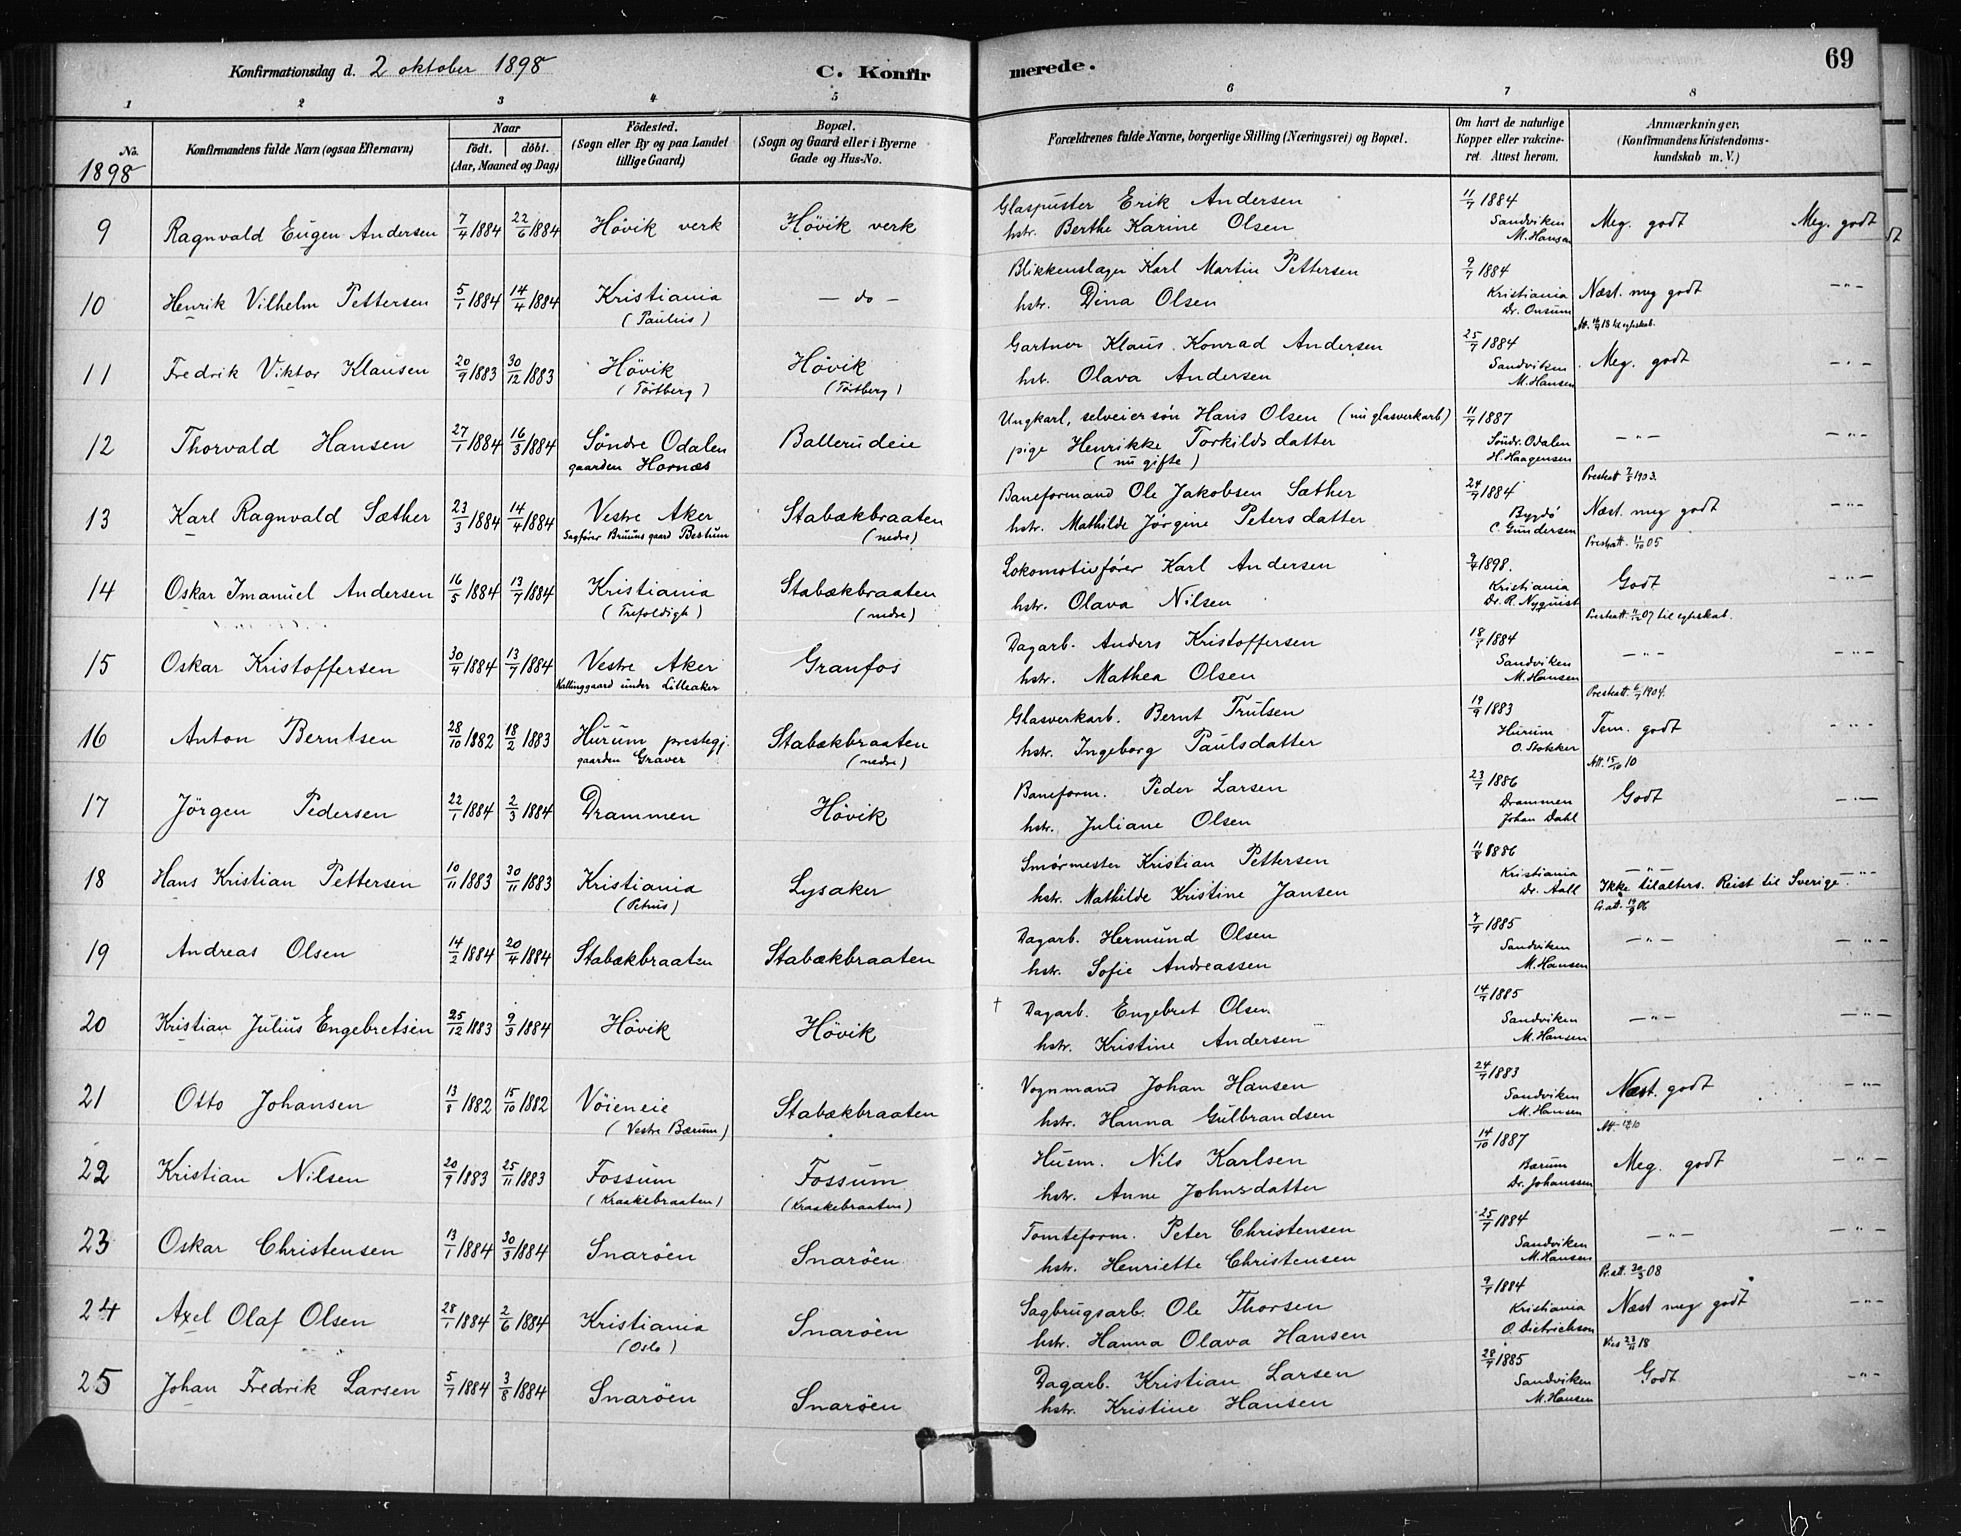 Konfirmationsdag d. 2 oktober 1898 C. Konfirmerede. 69
1 2 3 4 5 6 7 8
No. Konfirmandens fulde Navn (ogsaa Efternavn) Naar födt. döbt. (Aar, Maaned og Dag) Födested. (Sogn eller By og paa Landet tillige Gaard) Bopæl. (Sogn og Gaard eller i Byerne Gade og Hus-No. Forældrenes fulde Navne, borgerlige Stilling (Næringsvei) og Bopæl. Om havt de naturlige Kopper eller vakcineret. Attest herom. Anmærkninger. (Konfirmandens Kristendomskundskab m. V.)
1898
9 Ragnvald Eugen Andersen 7/4 1884 22/6 1884 Hövik verk Hövik verk Glaspuster Erik Andersen 11/7 1884
hstr. Berthe Karine Olsen Sandviken M. Hansen Meg. godt Meg. godt
10 Henrik Vilhelm Pettersen 5/1 1884 14/4 1884 Kristiania (Paulus) — do — Blikkenslager Karl Martin Pettersen 9/7 1884
hstr. Dina Olsen Kristiania Dr. Onsum Næst. meg godt — " —
11 Fredrik Viktor Klausen 20/9 1883 30/12 1883 Hövik (Törtberg) Hövik (Törtberg) Gartner Klaus Konrad Andersen 25/7 1884
hst. Olava Andersen Sandviken M. Hansen Meg. godt — " —
12 Thorvald Hansen 27/1 1884 16/3 1884 Söndre Odalen gaarden Hornæs Ballerudeie Ungkarl, selveiersön Hans Olsen (nu glasverkarb) 11/7 1887
pige Henrikke Torkildsdatter (nu gifte) Söndr. Odalen H. Haagensen — " — — " —
Prestatt 7/5 1903.
13 Karl Ragnvald Sæther 23/3 1884 14/4 1884 Vestre Aker Sagförer Bruuns gaard Bestum Stabækbraaten (nedre) Baneformand Ole Jakobsen Sæther 24/7 1884
hstr. Mathilde Jörgine Petersdatter Bygdö C. Gundersen Næst. meg godt — " —
Prestatt. 11/10 05
14 Oskar Imanuel Andersen 16/5 1884 13/7 1884 Kristiania (Trefoldigh) Stabækbraaten (nedre) Lokomotivförer Karl Andersen 1898.
hstr. Olava Nilsen Kristiania Dr. R. Nyquist Godt — " —
07 til egteskab.
15 Oskar Kristoffersen 30/4 1884 13/7 1884 Vestre Aker Kallinggaard under Lilleaker Granfos Dagarb. Anders Kristoffersen 18/7 1884
hstr. Mathea Olsen Sandviken M. Hansen — " — — " —
Prestatt. 6/7 1904.
16 Anton Berntsen 28/10 1882 18/2 1883 Hurum prestegj. gaarden Graver Stabækbraaten (nedre) Glasverkarb. Bernt Trulsen 19/9 1883
hstr. Ingeborg Paulsdatter Hurum O. Stokker Tem. godt — " —
Att. 15/10 10
17 Jörgen Pedersen 22/1 1884 2/3 1884 Drammen Hövik Baneform. Peder Larsen 23/7 1886
hstr. Juliane Olsen Drammen Johan Dahl Godt — " —
18 Hans Kristian Pettersen 10/11 1883 30/11 1883 Kristiania (Petrus) Lysaker Smörmester Kristian Pettersen 11/8 1886
hstr. Mathilde Kristine Jansen Kristiania Dr. Aall — " — Ikke tilalters. Reist til Sverige. — " —
19 Andreas Olsen 14/2 1884 20/4 1884 Stabækbraaten Stabækbraaten Dagarb. Hermund Olsen 7/7 1885
hstr. Sofie Andreassen Sandviken M. Hansen — " — — " —
20 Kristian Julius Engebretsen 25/12 1883 9/3 1884 Hövik Hövik † Dagarb. Engebret Olsen 14/7 1885
hstr. Kristine Andersen Sandviken M. Hansen — " — — " —
21 Otto Johansen 13/8 1882 15/10 1882 Vöieneie (Vestre Bærum) Stabækbraaten Vognmand Johan Hansen 24/7 1883
hstr. Hanna Gulbrandsen Sandviken M. Hansen Næst. godt — " —
22 Kristian Nilsen 20/9 1883 25/11 1883 Fossum (Kraakebraaten) Fossum (Kraakebraaten) Husm. Nils Karlsen 14/10 1887
hstr. Anne Johnsdatter Bærum Dr. Johanssen Meg. godt — " —
23 Oskar Christensen 13/1 1884 30/3 1884 Snaröen Snaröen Tomteform. Peter Christensen 25/7 1884
hstr. Henriette Christensen Sandviken M. Hansen — " — — " —
Pr. att. 08
24 Axel Olaf Olsen 28/1 1884 2/6 1884 Kristiania (Oslo) Snaröen Sagbrugsarb. Ole Thorsen 9/7 1884
hstr. Hanna Olava Hansen Kristiania O. Dietrichson Næst meg godt — " —
25 Johan Fredrik Larsen 5/7 1884 3/8 1884 Snaröen Snaröen Dagarb. Kristian Larsen 28/7 1885
hstr. Kristine Hansen Sandviken M. Hansen Godt — " —